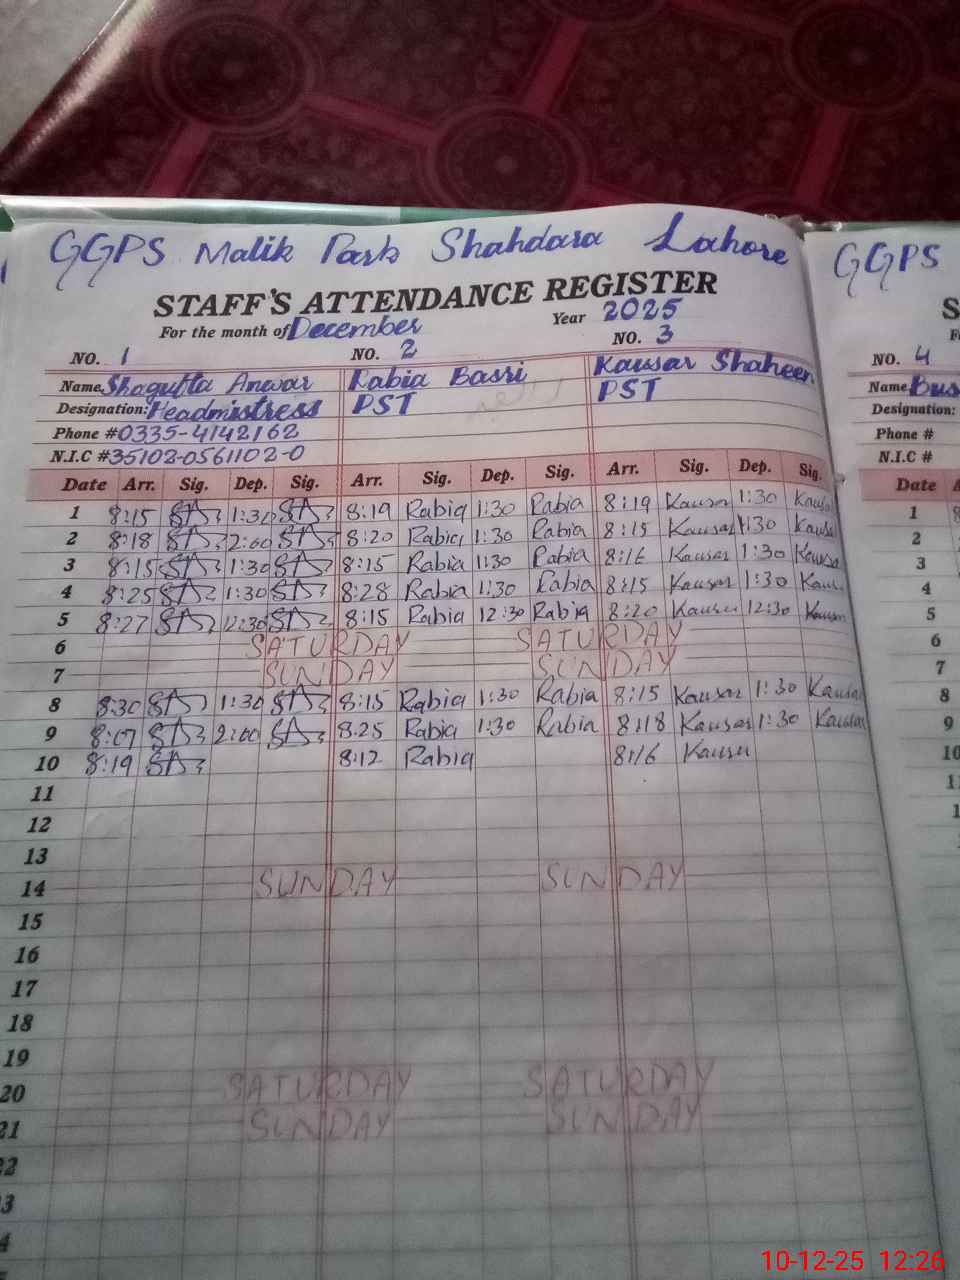 GGPS Malik Park Shahdara Lahore
GGPS
STAFF'S ATTENDANCE REGISTER
For the month of December Year 2025
NO. 1 NO. 2 NO. 3 NO. 4
Name Shagufta Anwar Rabia Basri Kausar Shaheen Name Bus
Designation: Headmistress PST PST Designation:
Phone # 0335-4142162 Phone #
N.I.C # 35102-0561102-0 N.I.C #
Date Arr. Sig. Dep. Sig. Arr. Sig. Dep. Sig. Arr. Sig. Dep. Sig. Date
1 8:15 1:30 8:19 Rabia 1:30 Rabia 8:19 Kausar 1:30 Kausar 1
2 8:18 2:00 8:20 Rabia 1:30 Rabia 8:15 Kausar 1:30 Kausar 2
3 8:15 1:30 8:15 Rabia 1:30 Rabia 8:16 Kausar 1:30 Kausar 3
4 8:25 1:30 8:28 Rabia 1:30 Rabia 8:15 Kausar 1:30 Kausar 4
5 8:27 12:30 8:15 Rabia 12:30 Rabia 8:20 Kausar 12:30 Kausar 5
6 SATURDAY SATURDAY 6
7 SUNDAY SUNDAY 7
8 8:30 1:30 8:15 Rabia 1:30 Rabia 8:15 Kausar 1:30 Kausar 8
9 8:07 2:00 8.25 Rabia 1:30 Rabia 8:18 Kausar 1:30 Kausar 9
10 8:19 8:12 Rabia 8:16 Kausar 10
11
12
13
14 SUNDAY SUNDAY
15
16
17
18
19
20 SATURDAY SATURDAY
21 SUNDAY SUNDAY
22
3
4
10-12-25 12:26